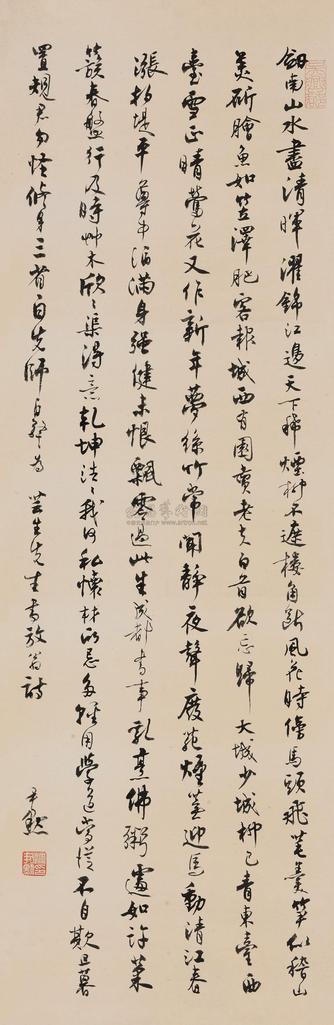 劍南山水盡清暉濯錦江邊天下稀煙柳不遮樓角斷風花時傍馬頭飛芼羹筍似稽山
美斫膾魚如笠澤肥客報城西有園賣老夫白首欲忘歸大城少城柳已青東臺西
臺雪正晴鶯花又作新年夢絲竹常聞靜夜聲廢苑煙蕪迎馬動清江春
漲拍堤平尊中酒滿身強健未恨飄零過此生成都書事乳烹佛粥遽如許菜
簇春盤行及時艸木欣欣渠得意乾坤浩浩我何私懷材所忌多輕用學道當從不自欺旦暮
置規君勿怪修身三省自先師為芸生先生書放翁詩
尹默